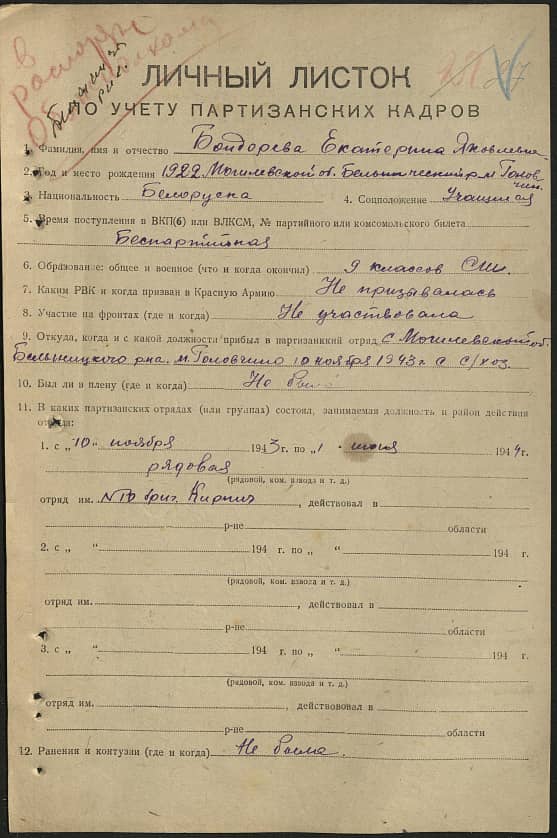 в распоряж
Обл
ЛИЧНЫЙ ЛИСТОК
27
ПО УЧЕТУ ПАРТИЗАНСКИХ КАДРОВ
1. Фамилия, имя и отчество Бондорева Екатерина Яковлевна
2. Год и место рождения 1922 Могилевской об. Белыническ р-м Голов
чин.
3. Национальность Белоруска 4. Соцположение Учащийся
5. Время поступления в ВКП(б) или ВЛКСМ, № партийного или комсомольского билета
Беспартийная
6. Образование: общее и военное (что и когда окончил) 9 классов СШ.
7. Каким РВК и когда призван в Красную Армию Не призывалась
8. Участие на фронтах (где и когда) Не участвовала
9. Откуда, когда и с какой должности прибыл в партизанкий отряд с Могилевской об.
Бельницкого рна. м. Головчино 10 ноября 1943 г. с с/хоз.
10. Был ли в плену (где и когда) Не была
11. В каких партизанских отрядах (или группах) состоял, занимаемая должность и район действия
отряда:
1. с „10" ноября 1943 г. по „1 июля 1944 г.
рядовая
(рядовой, ком. взвода и т. д.)
отряд им. №10 бриг. Кирпич, действовал в
р-не области
2. с „ " 194 г. по „ " 194 г.
(рядовой, ком. взвода и т. д.)
отряд им. , действовал в
р-не области
3. с „ " 194 г. по „ " 194 г.
(рядовой, ком. взвода и т. д.)
отряд им. , действововал в
р-не области
12. Ранения и контузии (где и когда) Не была.